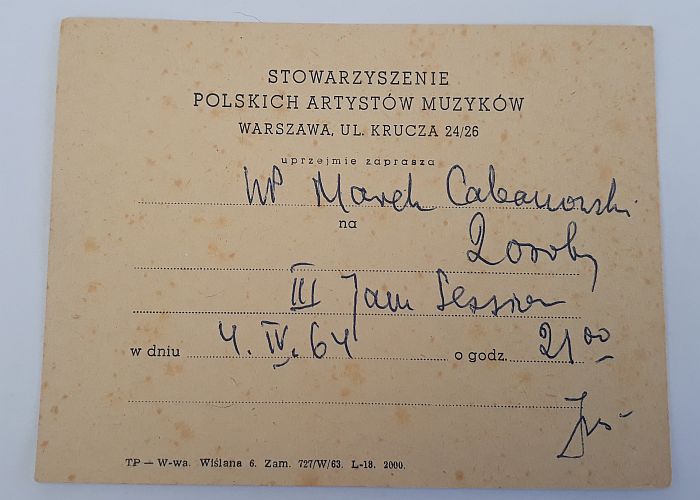 STOWARZYSZENIE
POLSKICH ARTYSTÓW MUZYKÓW
WARSZAWA, UL. KRUCZA 24/26
uprzejmie zaprasza
WP Marek Cabanowski
na
2 osoby
III Jam Session
w dniu 4. IV. 64 o godz. 21 00
TP — W-wa. Wiślana 6. Zam. 727/W/63. L-18. 2000.